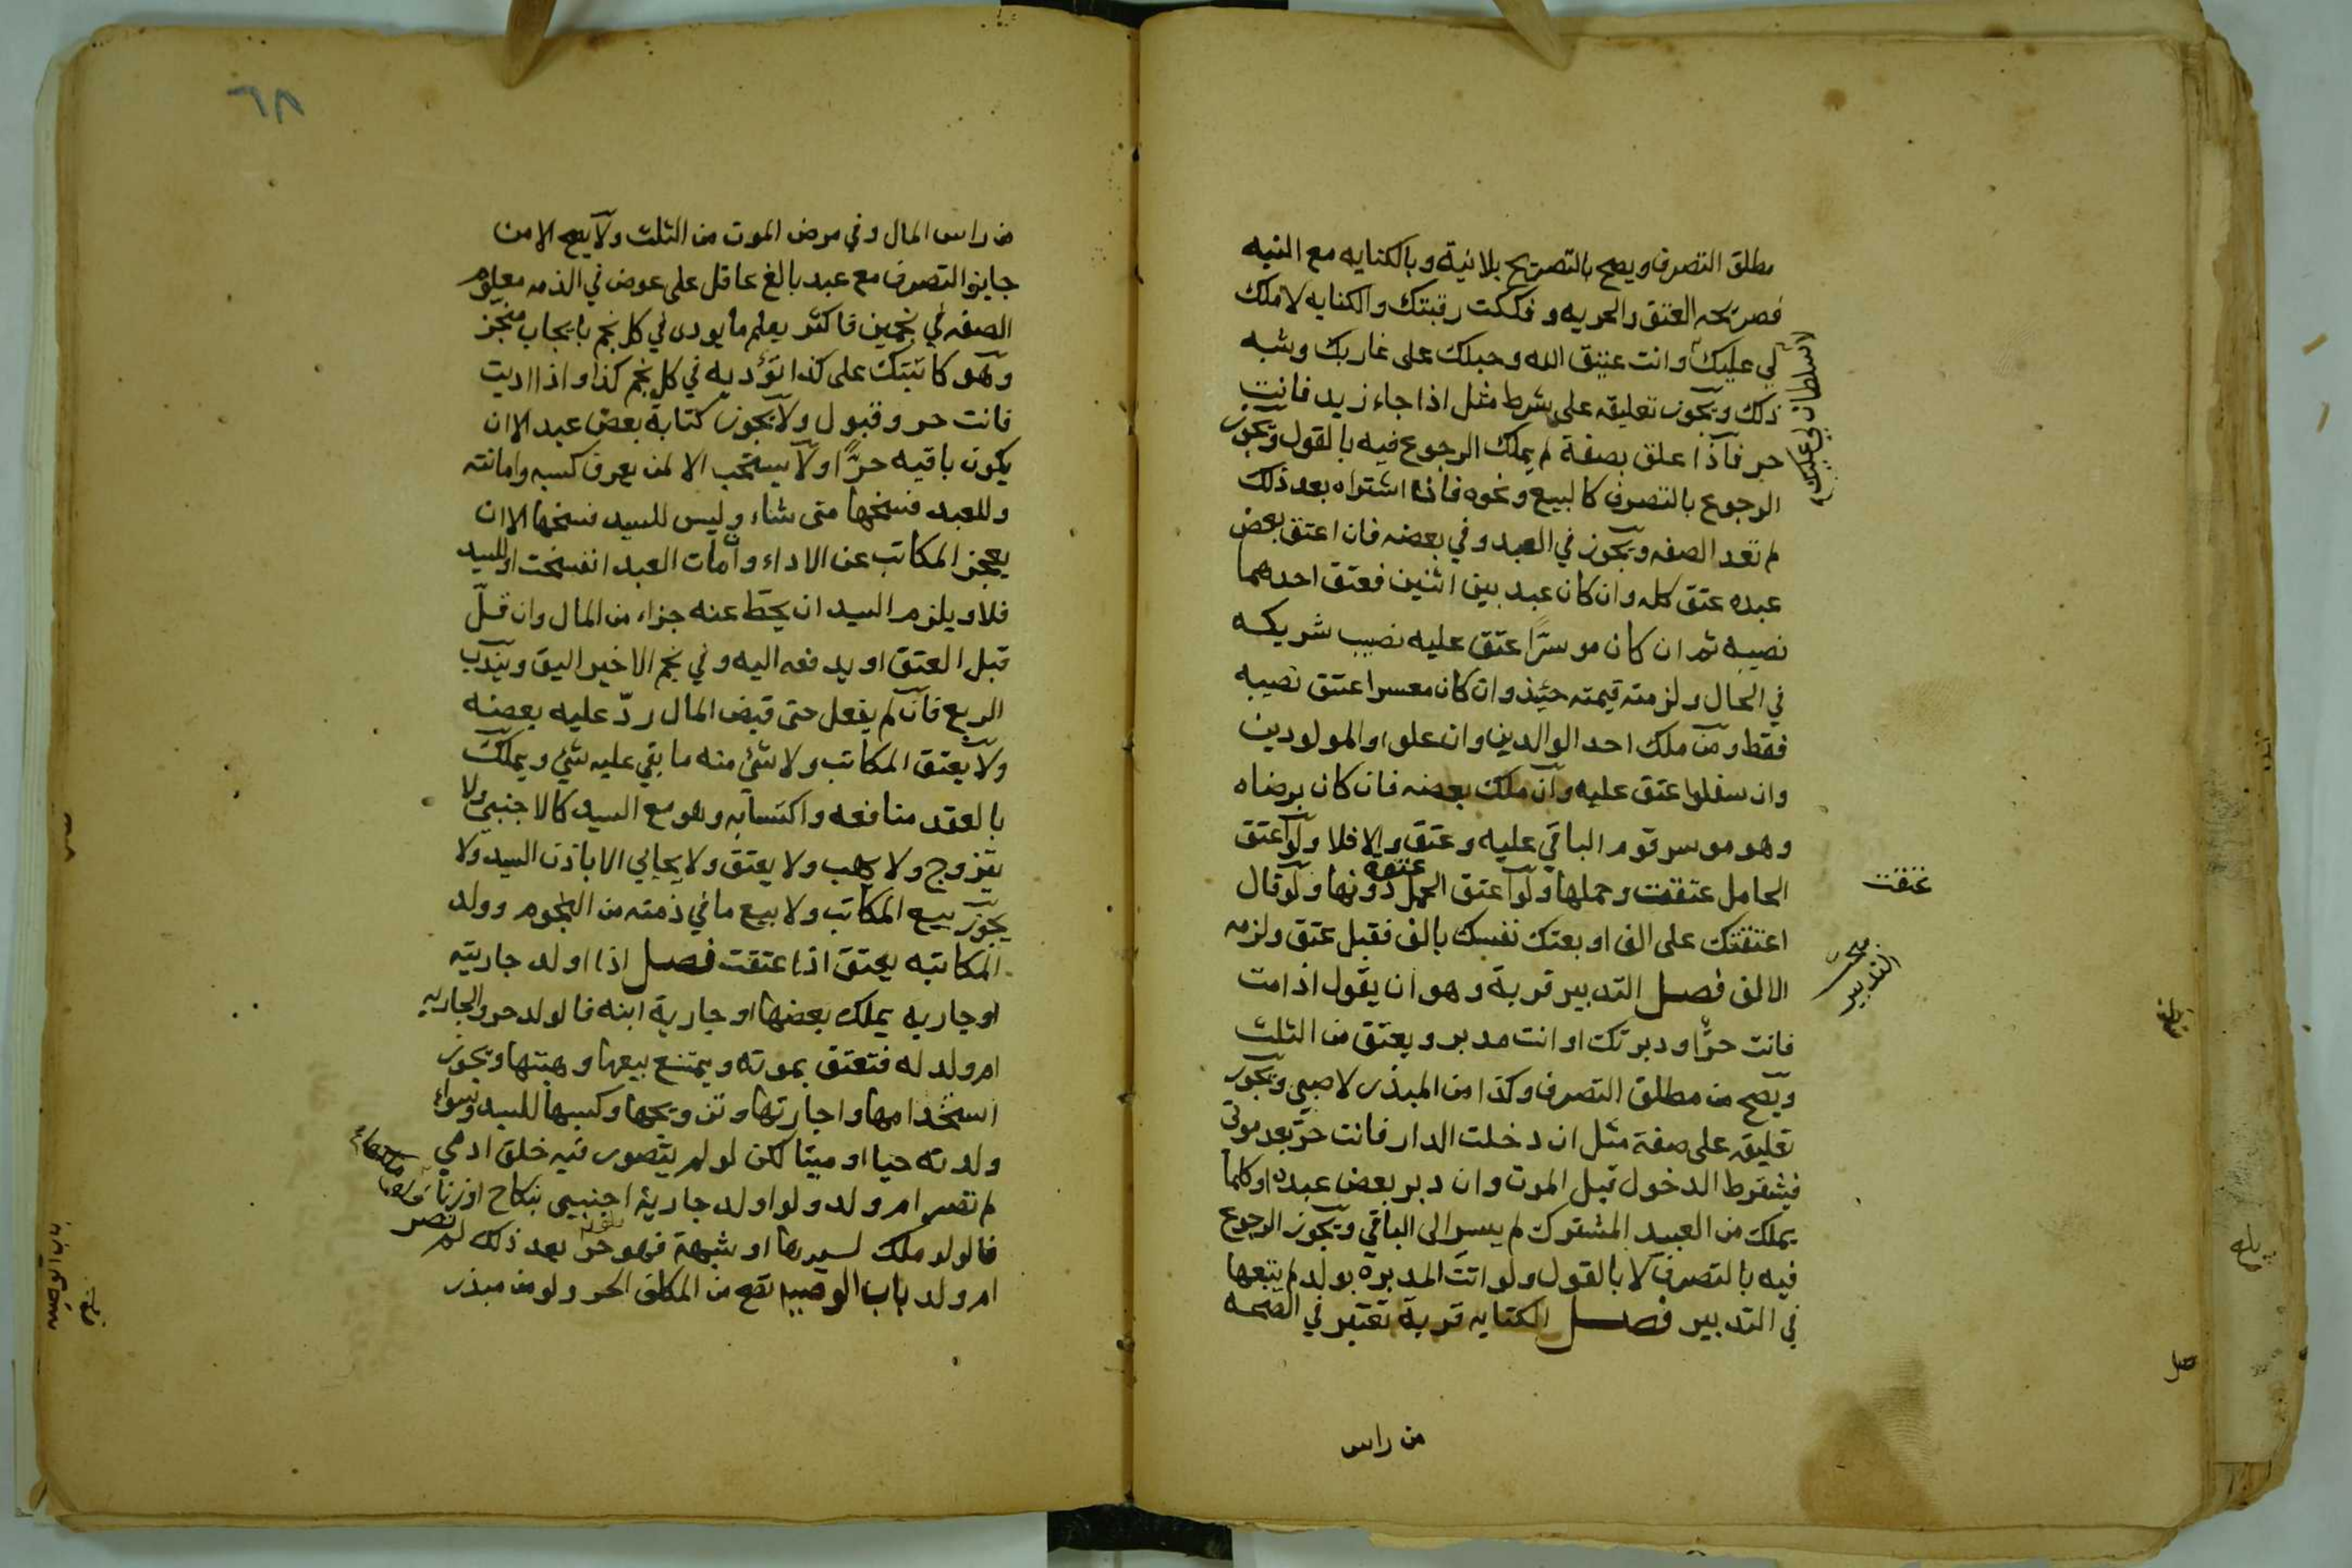 مطلق التصرف ويصح بالتصريح بلانية وبالكنايه مع النيه
فصريحه العتق والحريه وفككت رقبتك والكنايه لا ملك
لي عليك وانت عتيق الله وحبلك على غاربك وشبه
لا سلطان لي عليك
ذلك ويجوز تعليقه على شرط مثل اذا جاء زيد فانت
حر فاذا علق بصفة لم يملك الرجوع فيه بالقول ويجوز
الرجوع بالتصرف كالبيع ونحوه فاذا اشتراه بعد ذلك
لم تعد الصفه ويجوز في العبد وفي بعضه فان اعتق بعض
عبده عتق كله وان كان عبد بين اثنين فعتق احدهما
نصيبه ثم ان كان موسرًا عتق عليه نصيب شريكه
في الحال ولزمته قيمته حينئذ وان كان معسرا عتق نصيبه
فقط ومن ملك احد الوالدين وان علوا والمولودين
وان سفلوا عتق عليه وان ملك بعضه فان كان برضاه
وهو موسر قوم الباقي عليه وعتق والا فلا ولو اعتق
الحامل عتقت وحملها ولو اعتق الحمل عتق دونها ولو قال
عتقت
اعتقتك على الف او بعتك نفسك بالف فقبل عتق ولزمه
الالف فصل التدبير قربة وهو ان يقول اذا مت
التدبير
فانت حرٌّ او دبرتك او انت مدبر ويعتق من الثلث
ويصح من مطلق التصرف وكذا من المبذر لا صبي ويجوز
تعليقه على صفة مثل ان دخلت الدار فانت حرّ بعد موتي
فيشترط الدخول قبل الموت وان دبر بعض عبده او كلما
يملك من العبيد المشترك لم يسر الى الباقي ويجوز الرجوع
فيه بالتصرف لا بالقول ولو اتت المدبره بولد لم يتبعها
في التدبير فصل الكتابه قربة تعتبر في الصحه
من راس
٦٨
من راس المال وفي مرض الموت من الثلث ولا يصح الا من
جايز التصرف مع عبد بالغ عاقل على عوض في الذمه معلوم
الصفه في نجمين فاكثر يعلم ما يودى في كل نجم بايجاب منجز
وهو كاتبتك على كذا تؤديه في كل نجم كذا واذا اديت
فانت حر وقبول ولا يجوز كتابة بعض عبد الا ان
يكون باقيه حرًّا ولا يستحب الا لمن يعرف كسبه وامانته
وللعبد فسخها متى شاء وليس للسيد فسخها الا ان
يعجز المكاتب عن الاداء وان مات العبد انفسخت او السيد
فلا ويلزم السيد ان يحطّ عنه جزاء من المال وان قلّ
قبل العتق او يدفعه اليه وفي نجم الاخير اليق ويندب
الربع فان لم يفعل حتى قبض المال ردّ عليه بعضه
ولا يعتق المكاتب ولا شئ منه ما بقي عليه شئ ويملك
بالعقد منافعه واكتسابه وهو مع السيد كالاجنبي ولا
يتزوج ولا يهب ولا يعتق ولا يحابي الا باذن السيد ولا
يجوز بيع المكاتب ولا بيع ما في ذمته من النجوم وولد
المكاتبه يعتق اذا عتقت فصل اذا اولد جاريته
او جاريه يملك بعضها او جارية ابنه فالولد حر والجاريه
ام ولد له فتعتق بموته ويمتنع بيعها وهبتها ويجوز
استخدامها واجارتها وتزويجها وكسبها للسيد وسواء
ولدته حيا او ميتا لكن لو لم يتصور فيه خلق ادمي
لم تصر ام ولد ولو اولد جارية اجنبي بنكاح او زنا
فالولد ملك لسيدها او شبهة فهو حرّ بعد ذلك لم تصر
ام ولد باب الوصيه تصح من المكلف الحر ولو من مبذر
باب الوصيه